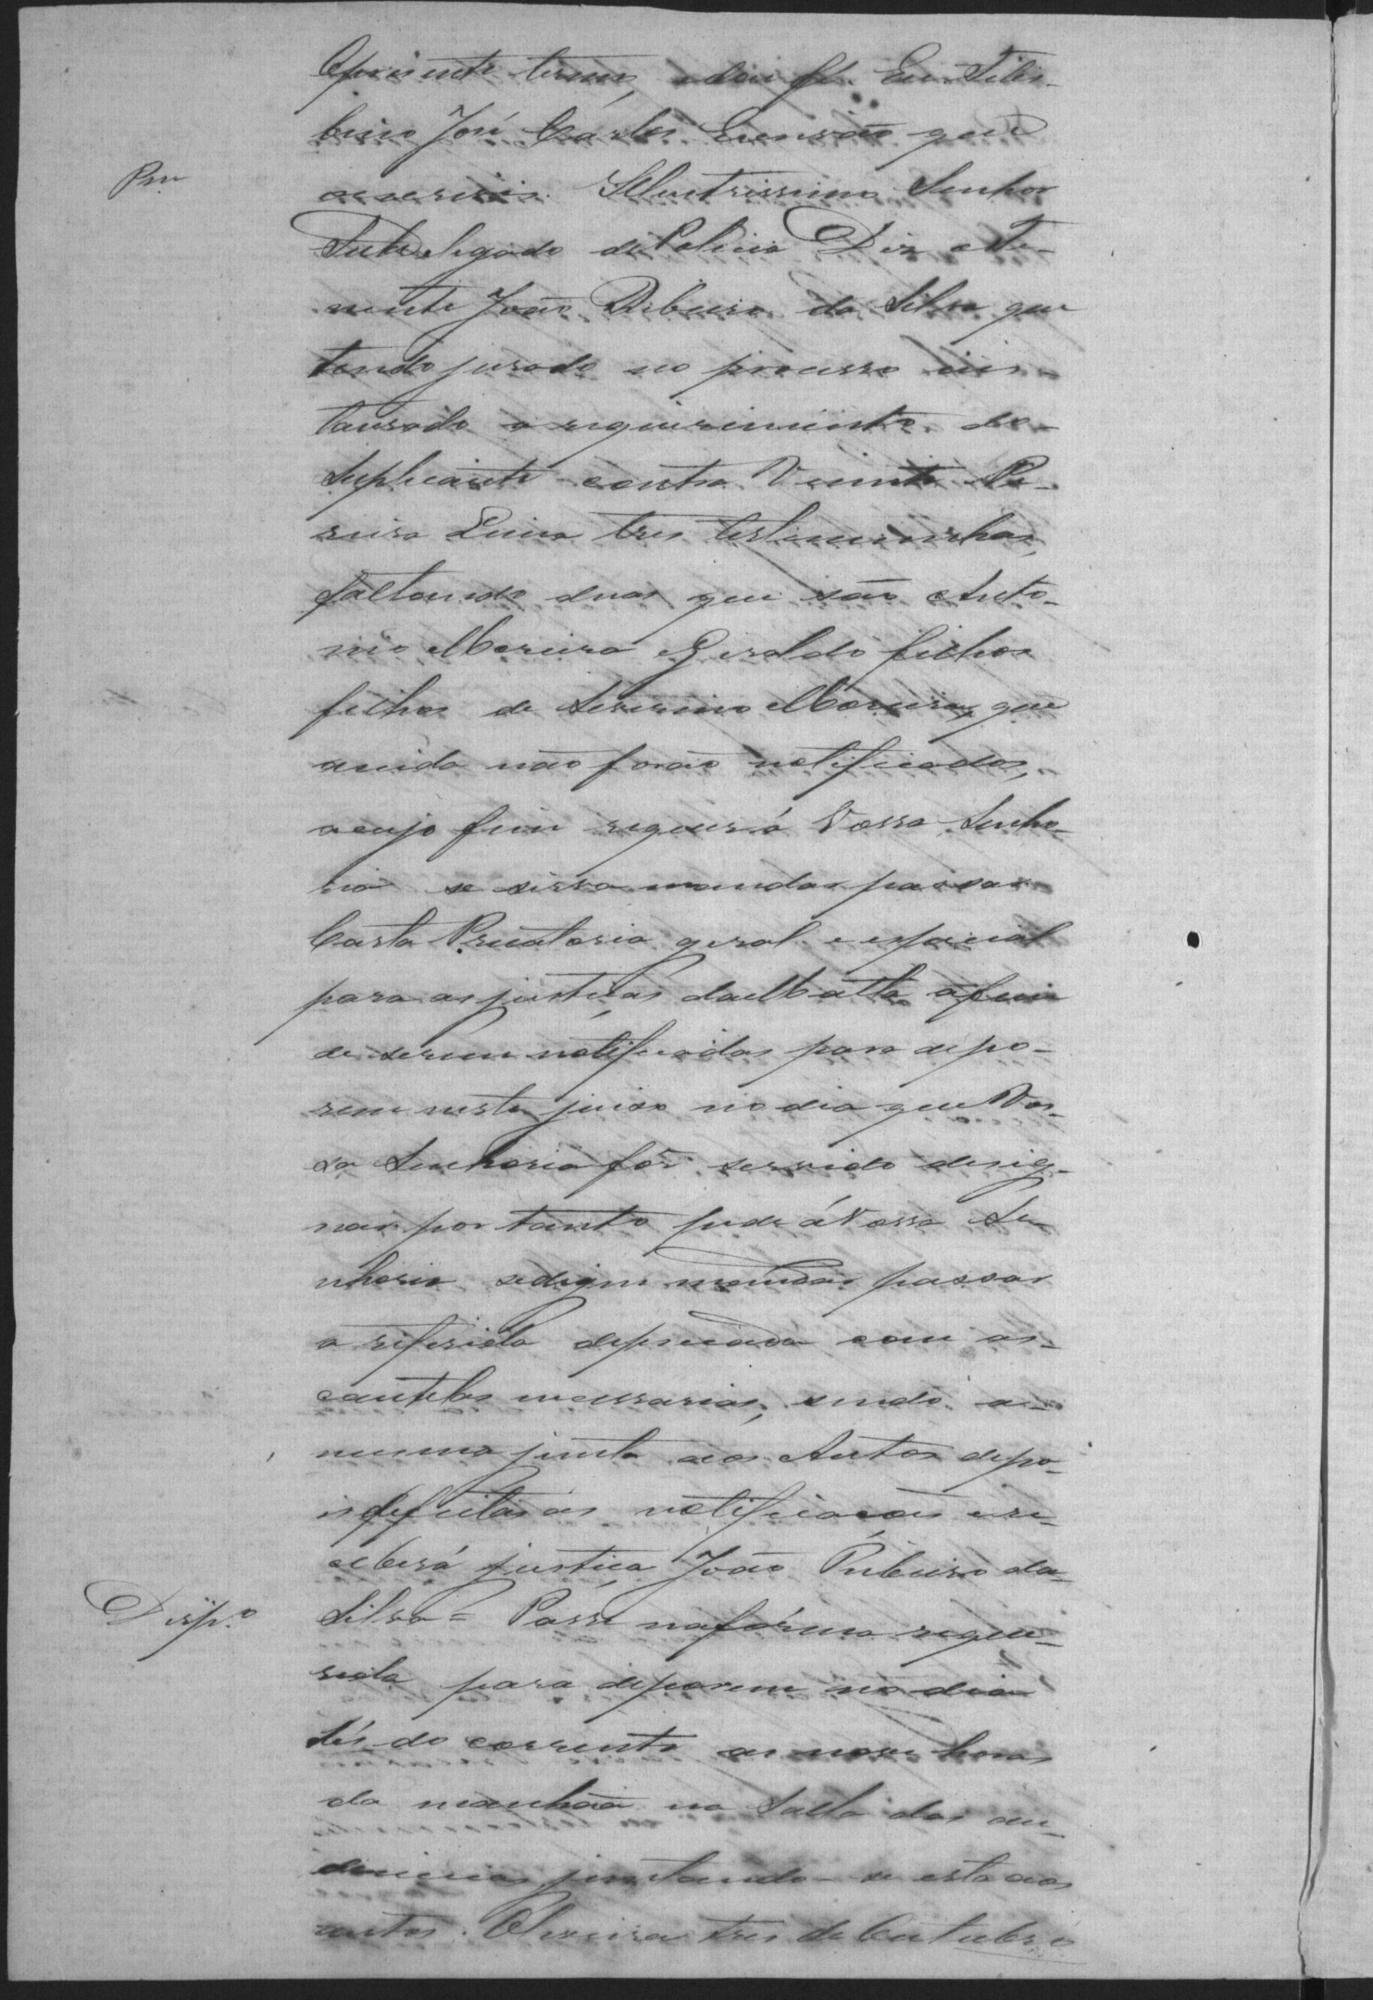 O presente termo, e dou fé. Eu Tibur-
cino José Carlos Escrivão que
Pm
o escrevi. Illustrissimo Senhor
Subdelegado de Policia Diz o Te-
nente João Ribeiro da Silva que
tendo jurado no processo ins-
taurado a requirimento do
Supplicante contra Vicente Pe-
reira Lima tres testimunhas,
faltando duas que são Anto-
nio Moreira e Giraldo filhos
filhos de Severino Moreira, que
ainda não forão notificados,
a cujo fim requer á Vossa Senho-
ria se sirva mandar passar
Carta Precatoria geral e especial
para as justiças da Matta a fim
de serem notificadas para depo-
rem neste juiso no dia que Vos-
sa Senhoria fôr servido desig-
nar por tanto pede á Vossa Se-
nhoria se digne mandar passar
a referida deprecada com as
cautelas necessarias, sendo a
mesma junta aos Autos depo-
is de feitas as notificações e re-
ceberá justiça João Ribeiro da
Disp.o
Silva = Passe na fórma reque-
rida para deporem no dia
seis do corrente as nove horas
da manhãa na Salla das au-
diencias juntando-se esta aos
autos. Oliveira tres de Outubro